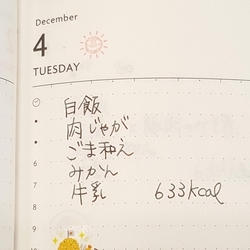 December
4
TUESDAY
白飯
肉じゃが
ごま和え
みかん
牛乳 633kcal
6
7
8
9